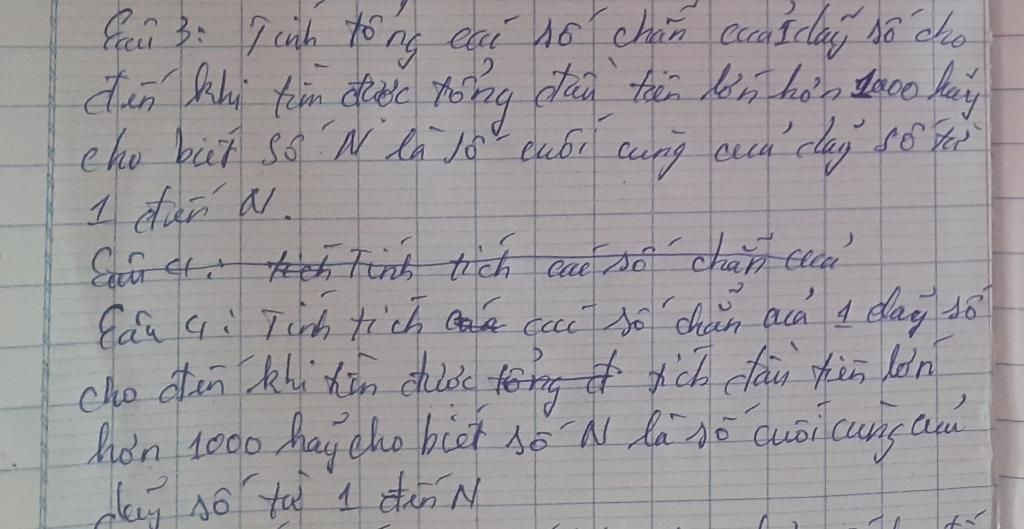 Câu 3: Tính tổng các số chẵn của 1 dãy số cho
đến khi tìm được tổng đầu tiên lớn hơn 1000 hãy
cho biết số N là số cuối cùng của dãy số từ
1 đến N.
Câu 4: tích Tính tích các số chẵn của
Câu 4: Tính tích các số chẵn của 1 dãy số
cho đến khi tìm được tổng đ tích đầu tiên lớn
hơn 1000 hãy cho biết số N là số cuối cùng của
dãy số từ 1 đến N